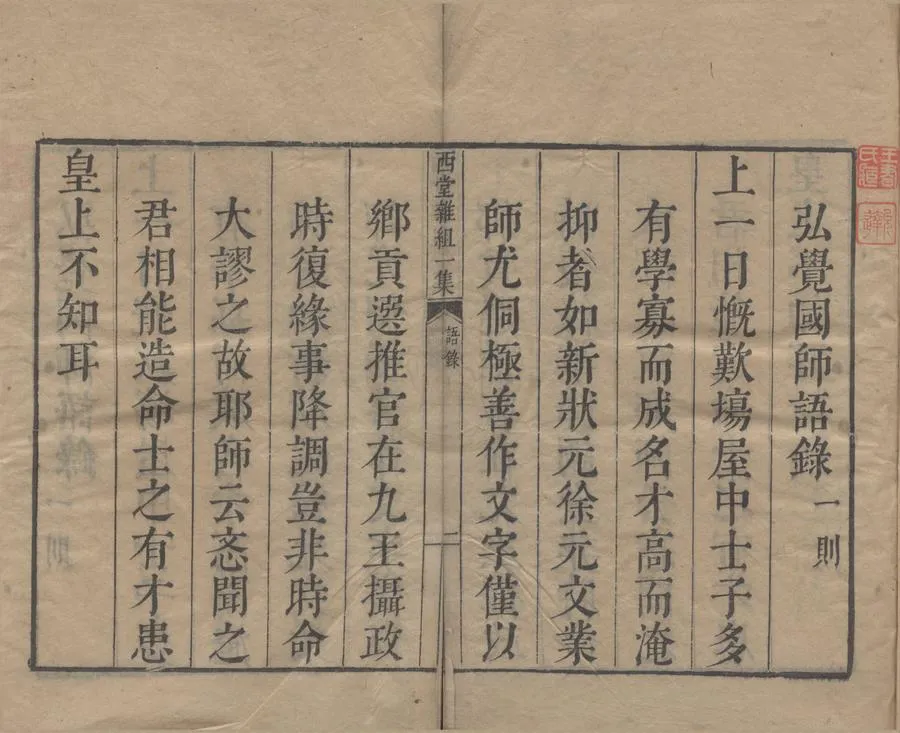 弘覺國師語錄一則
上一日慨歎塲屋中士子多
有學寡而成名才高而淹
抑者如新狀元徐元文業
師尤侗極善作文字僅以
西堂雜組一集
語錄
二
鄉貢選推官在九王攝政
時復緣事降調豈非時命
大謬之故耶師云忞聞之
君相能造命士之有才患
皇上不知耳